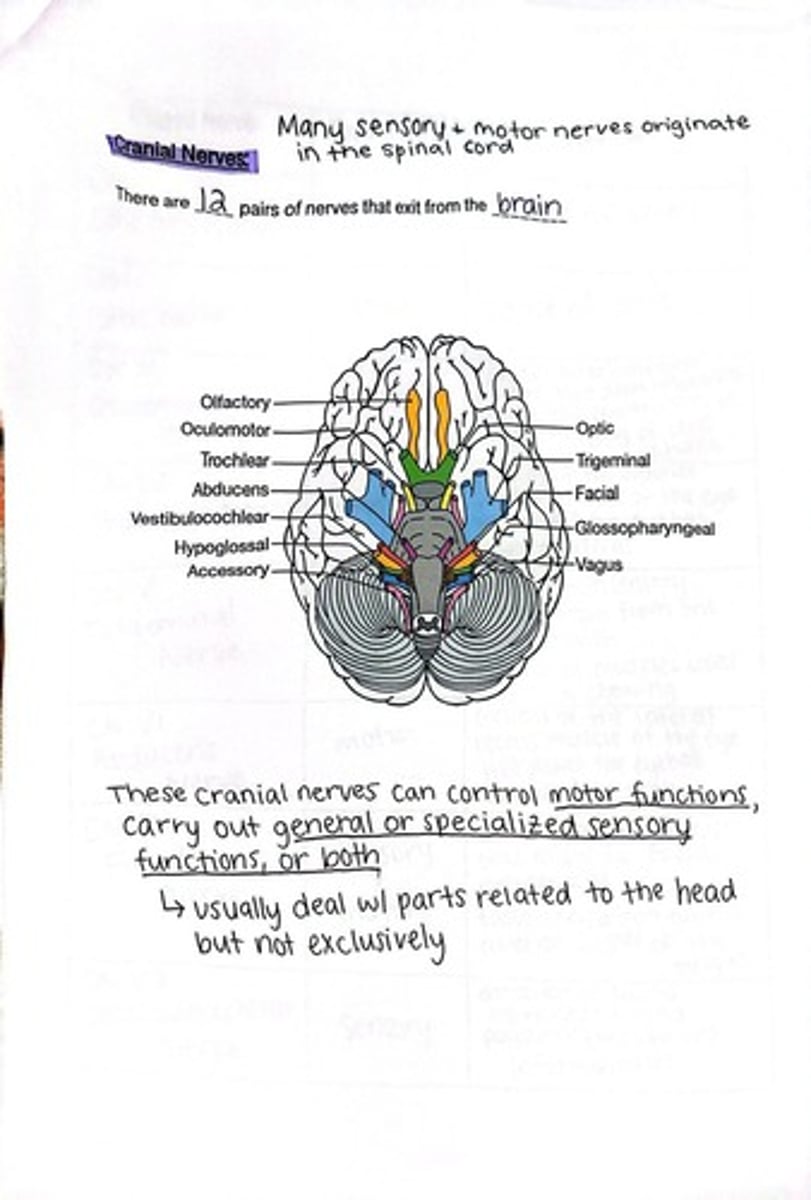 Many sensory + motor nerves originate
in the spinal cord
Cranial Nerves:
There are 12 pairs of nerves that exit from the brain
Olfactory
Oculomotor
Trochlear
Abducens
Vestibulocochlear
Hypoglossal
Accessory
Optic
Trigeminal
Facial
Glossopharyngeal
Vagus
These cranial nerves can control motor functions,
carry out general or specialized sensory
functions, or both
↳ usually deal w/ parts related to the head
but not exclusively
motor
Sensory